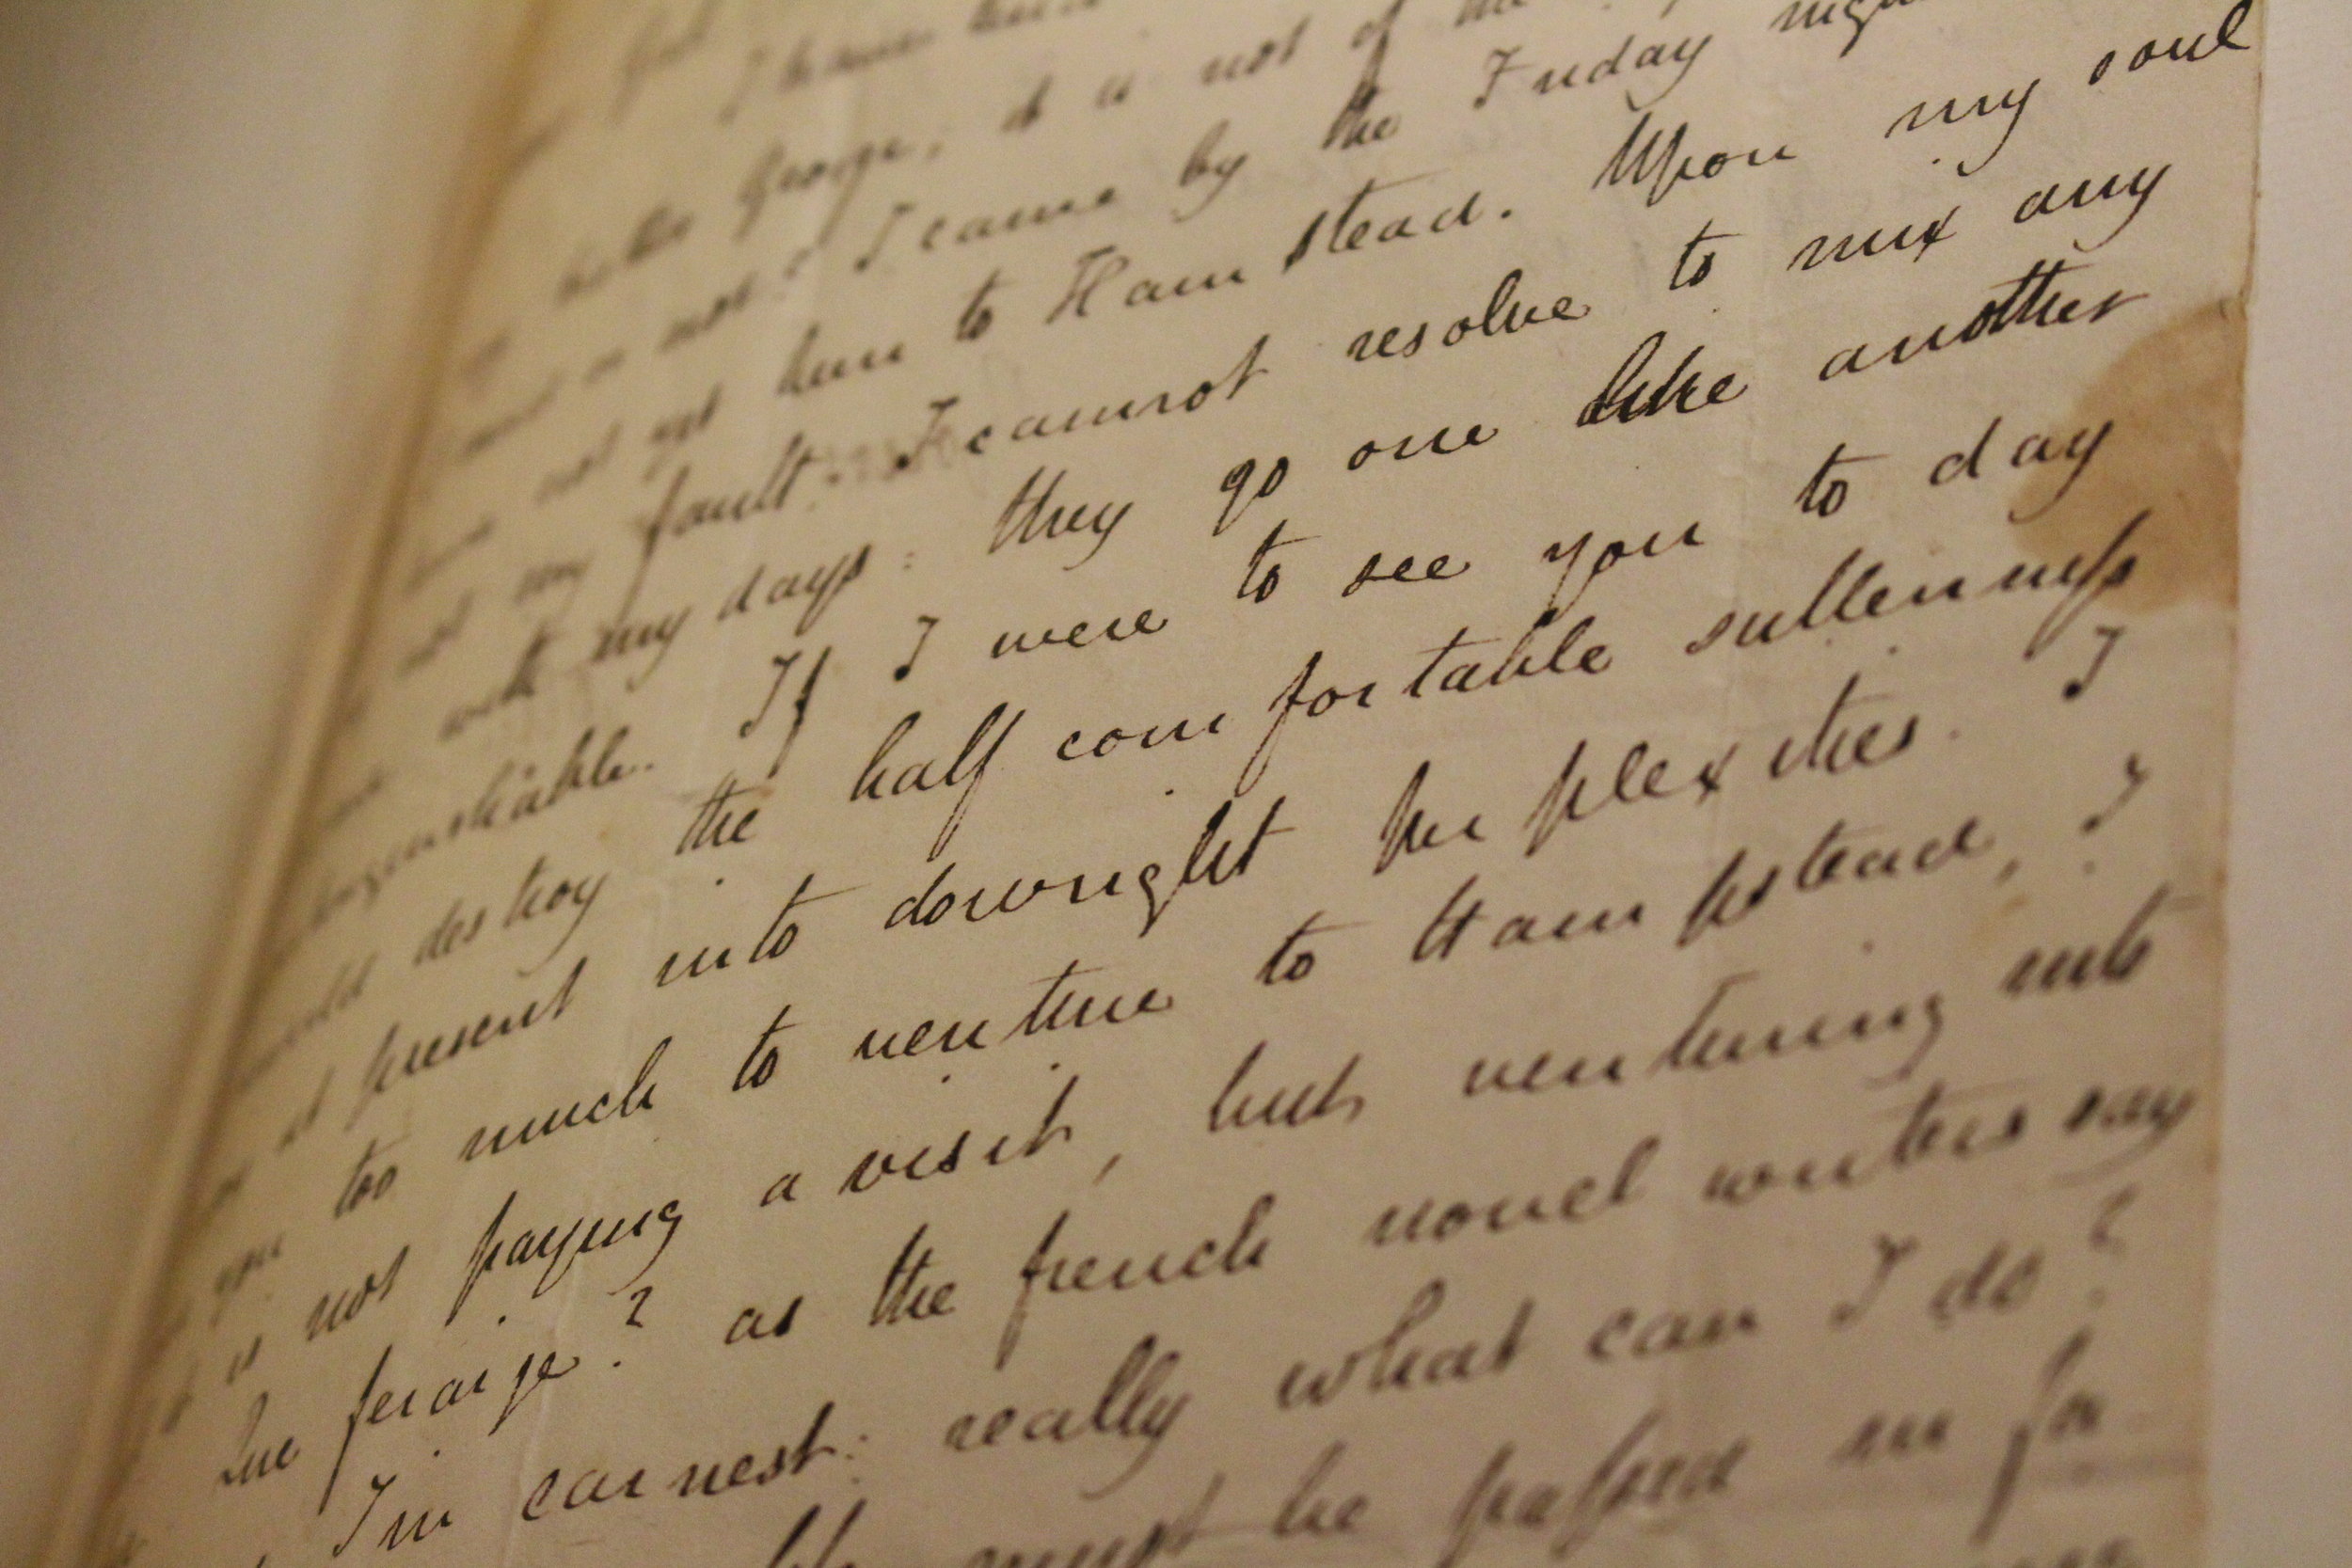 I have
George, it is not of
or not? I came by the Friday night
not yet been to Ham stead. Upon my soul
not my fault. I cannot resolve to mix any
with my days: they go one like another
If I were to see you to day
destroy the half comfortable sullenness
at present into downright perplexities. I
you too much to venture to Hampstead, I
it is not paying a visit, but venturing into
Que feraije? as the french novel writers say
I'm earnest: really what can I do?
must be passed in fa